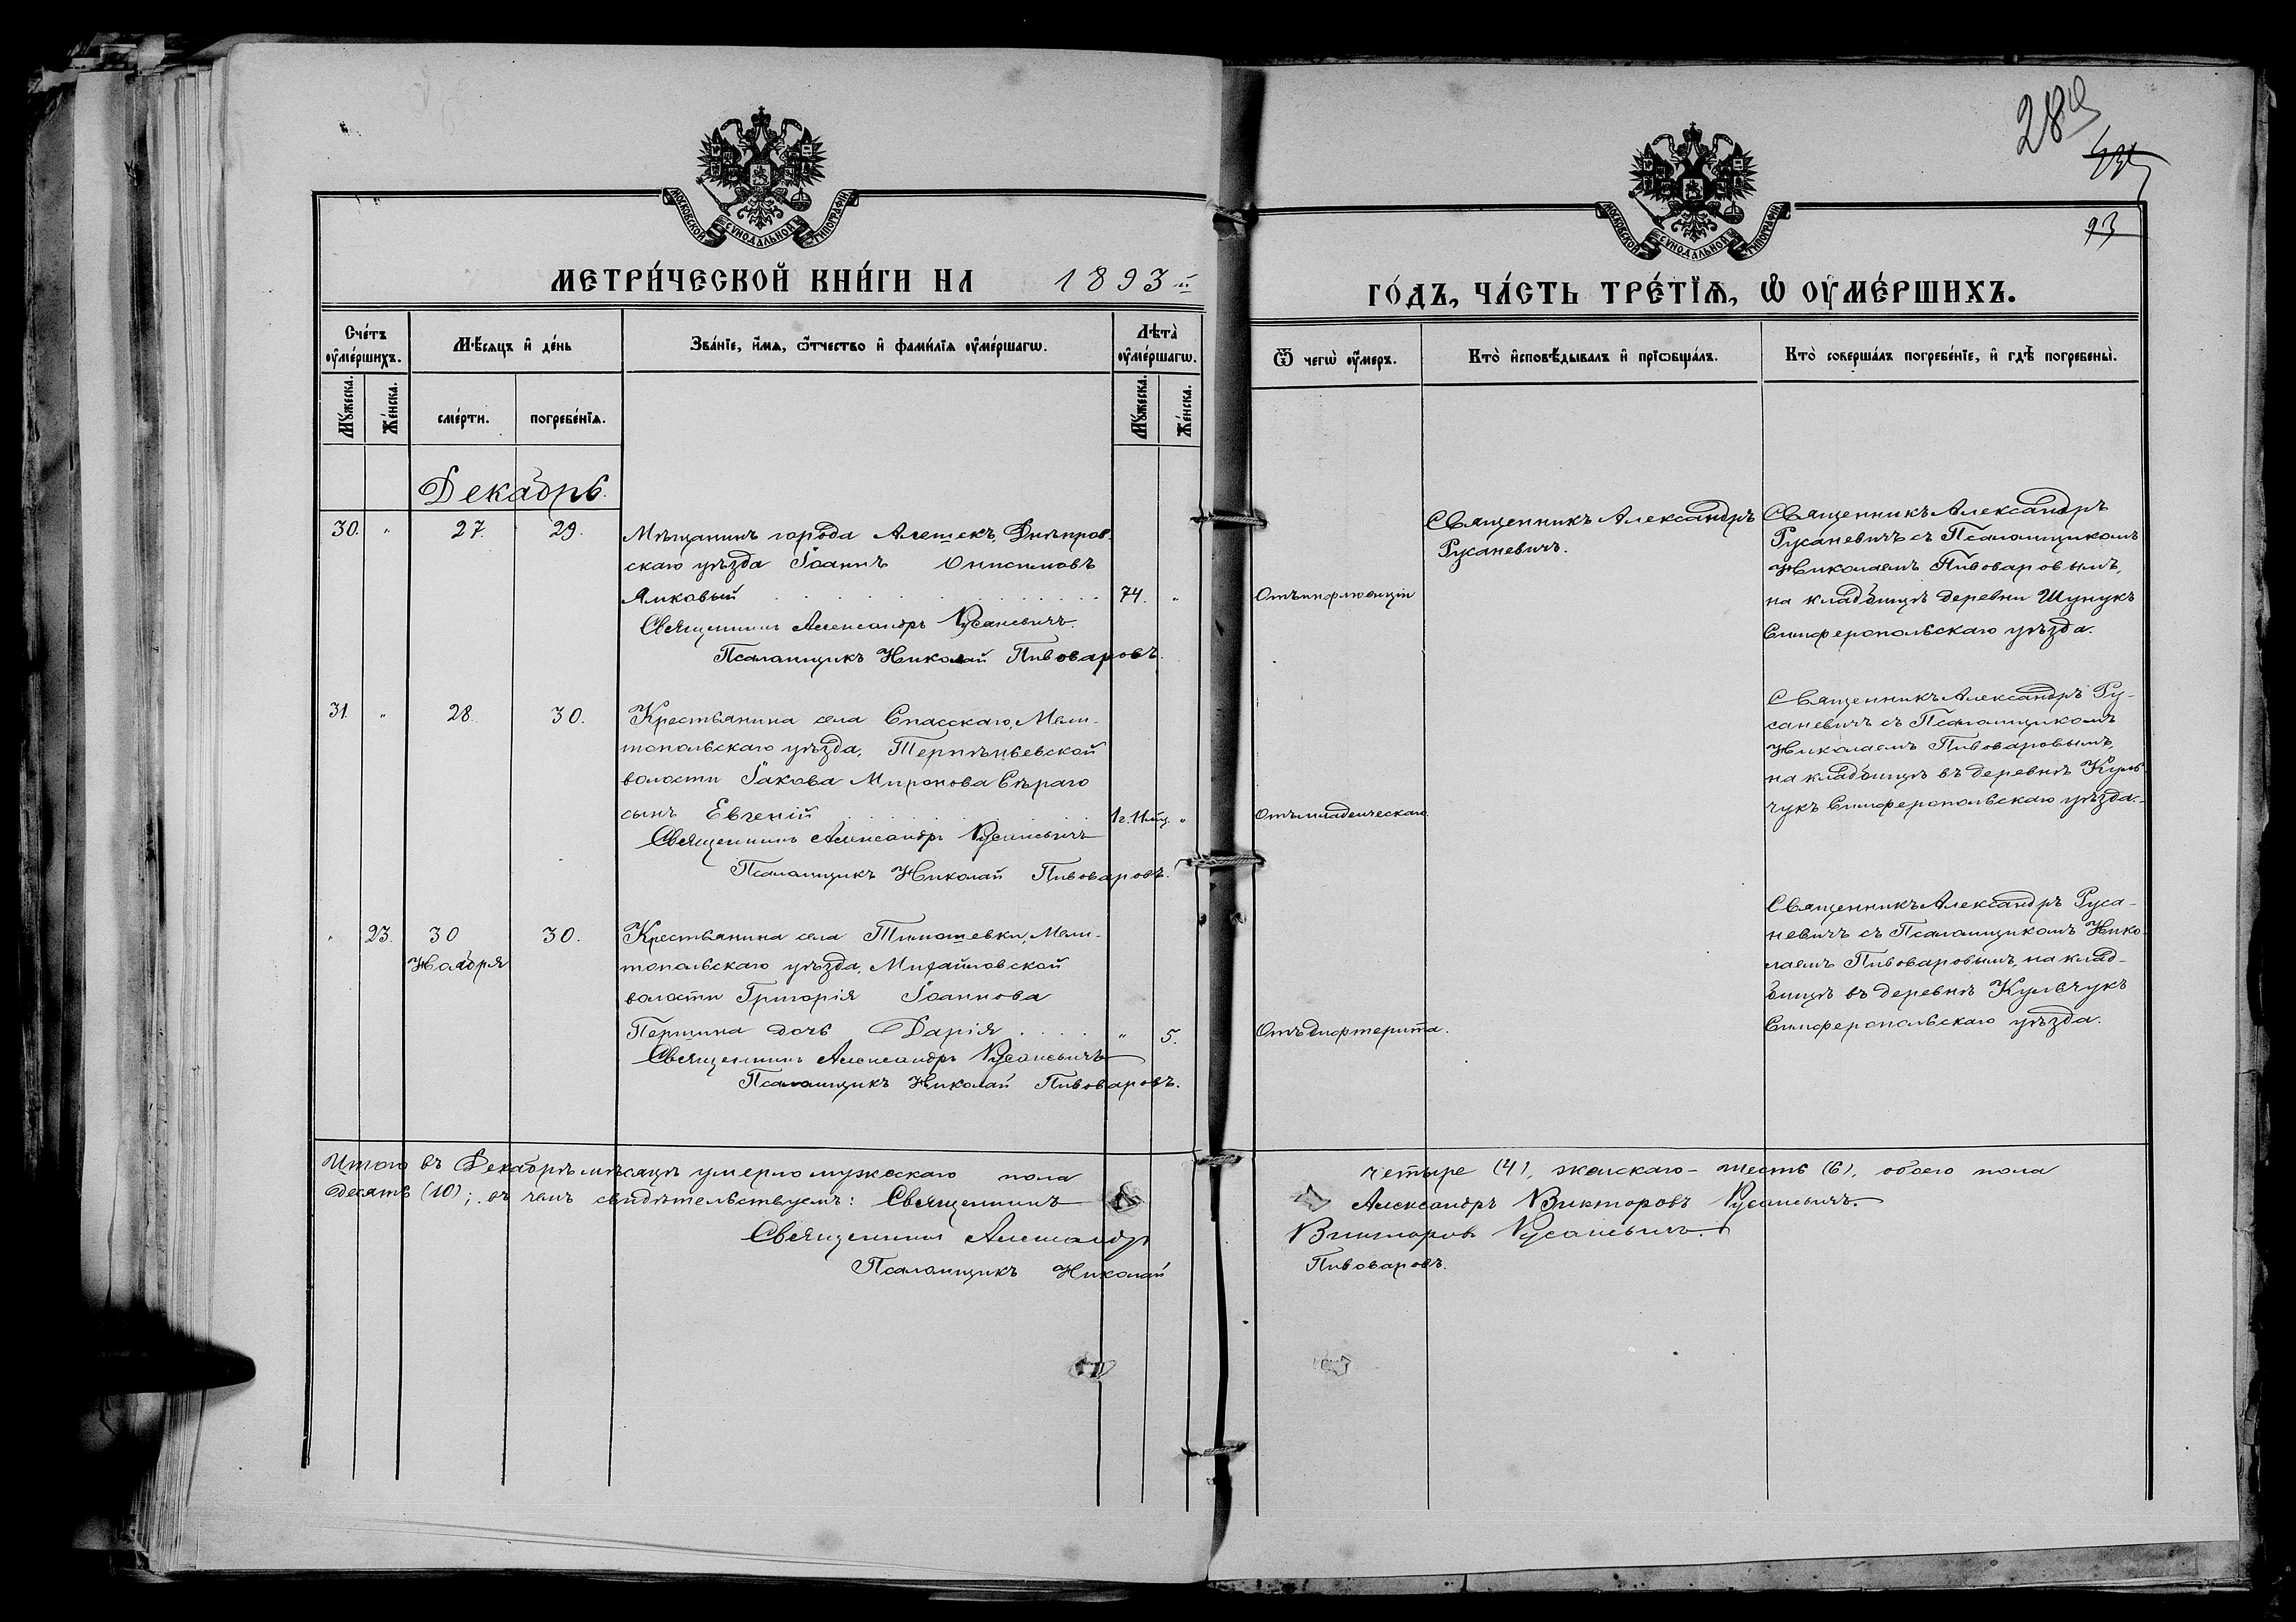 МОСКОВСКОЙ СѴНОДАЛЬНОЙ ТИПОГРАФІИ
МЕТРИ́ЧЕСКОЙ КНИ́ГИ НА 1893й
Сче́тъ ᲂу҆ме́ршихъ.
Мѣ́сяцъ и҆ де́нь
Зва́нїе, и҆́мѧ, ѻ҆́тчество и҆ фами́лїѧ ᲂу҆ме́ршагѡ.
Лѣта̀ ᲂу҆ме́ршагѡ.
Му́жеска.
Же́нска.
сме́рти.
погребе́нїѧ.
Му́жеска.
Же́нска.
Декабрь.
30. " 27. 29.
Мѣщанинъ города Алешекъ, Днѣпров-
скаго уѣзда Іоаннъ Онисимовъ
Ямковый 74. "
Священникъ Александръ Русаневичъ.
Псаломщикъ Николай Пивоваровъ.
31. " 28. 30.
Крестьянина села Спасскаго, Мели-
топольскаго уѣзда, Терпѣньевской
волости Іакова Миронова Сѣраго
сынъ Евгеній 1г. 11мц. "
Священникъ Александръ Русаневичъ
Псаломщикъ Николай Пивоваровъ.
" 23. 30 Ноября 30.
Крестьянина села Тимошевки, Мели-
топольскаго уѣзда, Михайловской
волости Григорія Іоаннова
Першина дочь Дарія " 5.
Священникъ Александръ Русаневичъ
Псаломщикъ Николай Пивоваровъ.
Итого въ Декабрѣ мѣсяцѣ умерло мужескаго пола
десять (10); въ чемъ свидѣтельствуемъ: Священникъ
Священникъ Александръ
Псаломщикъ Николай
28
93
МОСКОВСКОЙ СѴНОДАЛЬНОЙ ТИПОГРАФІИ
ГО́ДЪ, ЧА́СТЬ ТРЕ́ТЇѦ, Ѡ҆ ОУ҆МЕ́РШИХЪ.
Ѿ чегѡ̀ ᲂу҆́меръ.
Кто̀ и҆сповѣ́дывалъ и҆ прїѡбща́лъ.
Кто̀ соверша́лъ погребе́нїе, и҆ гдѣ̀ погребены̀.
Отъ инфлюэнціи
Священникъ Александръ
Русаневичъ.
Священникъ Александръ
Русаневичъ съ Псаломщикомъ
Николаемъ Пивоваровымъ,
на кладбищѣ деревни Шунукъ
Симферопольскаго уѣзда.
Отъ младенческаго.
Священникъ Александръ Ру-
саневичъ съ Псаломщикомъ
Николаемъ Пивоваровымъ,
на кладбищѣ въ деревнѣ Куль-
чукъ Симферопольскаго уѣзда.
Отъ дифтерита.
Священникъ Александръ Руса-
невичъ съ Псаломщикомъ Нико-
лаемъ Пивоваровымъ, на клад-
бищѣ въ деревнѣ Кульчукъ
Симферопольскаго уѣзда.
четыре (4), женскаго - шесть (6), обоего пола
Александръ Викторовъ Русаневичъ.
Викторовъ Русаневичъ.
Пивоваровъ.